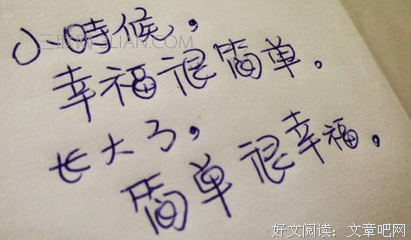 小時候，
幸福很简单。
长大了，
简单很幸福。
好文阅读：文章吧网